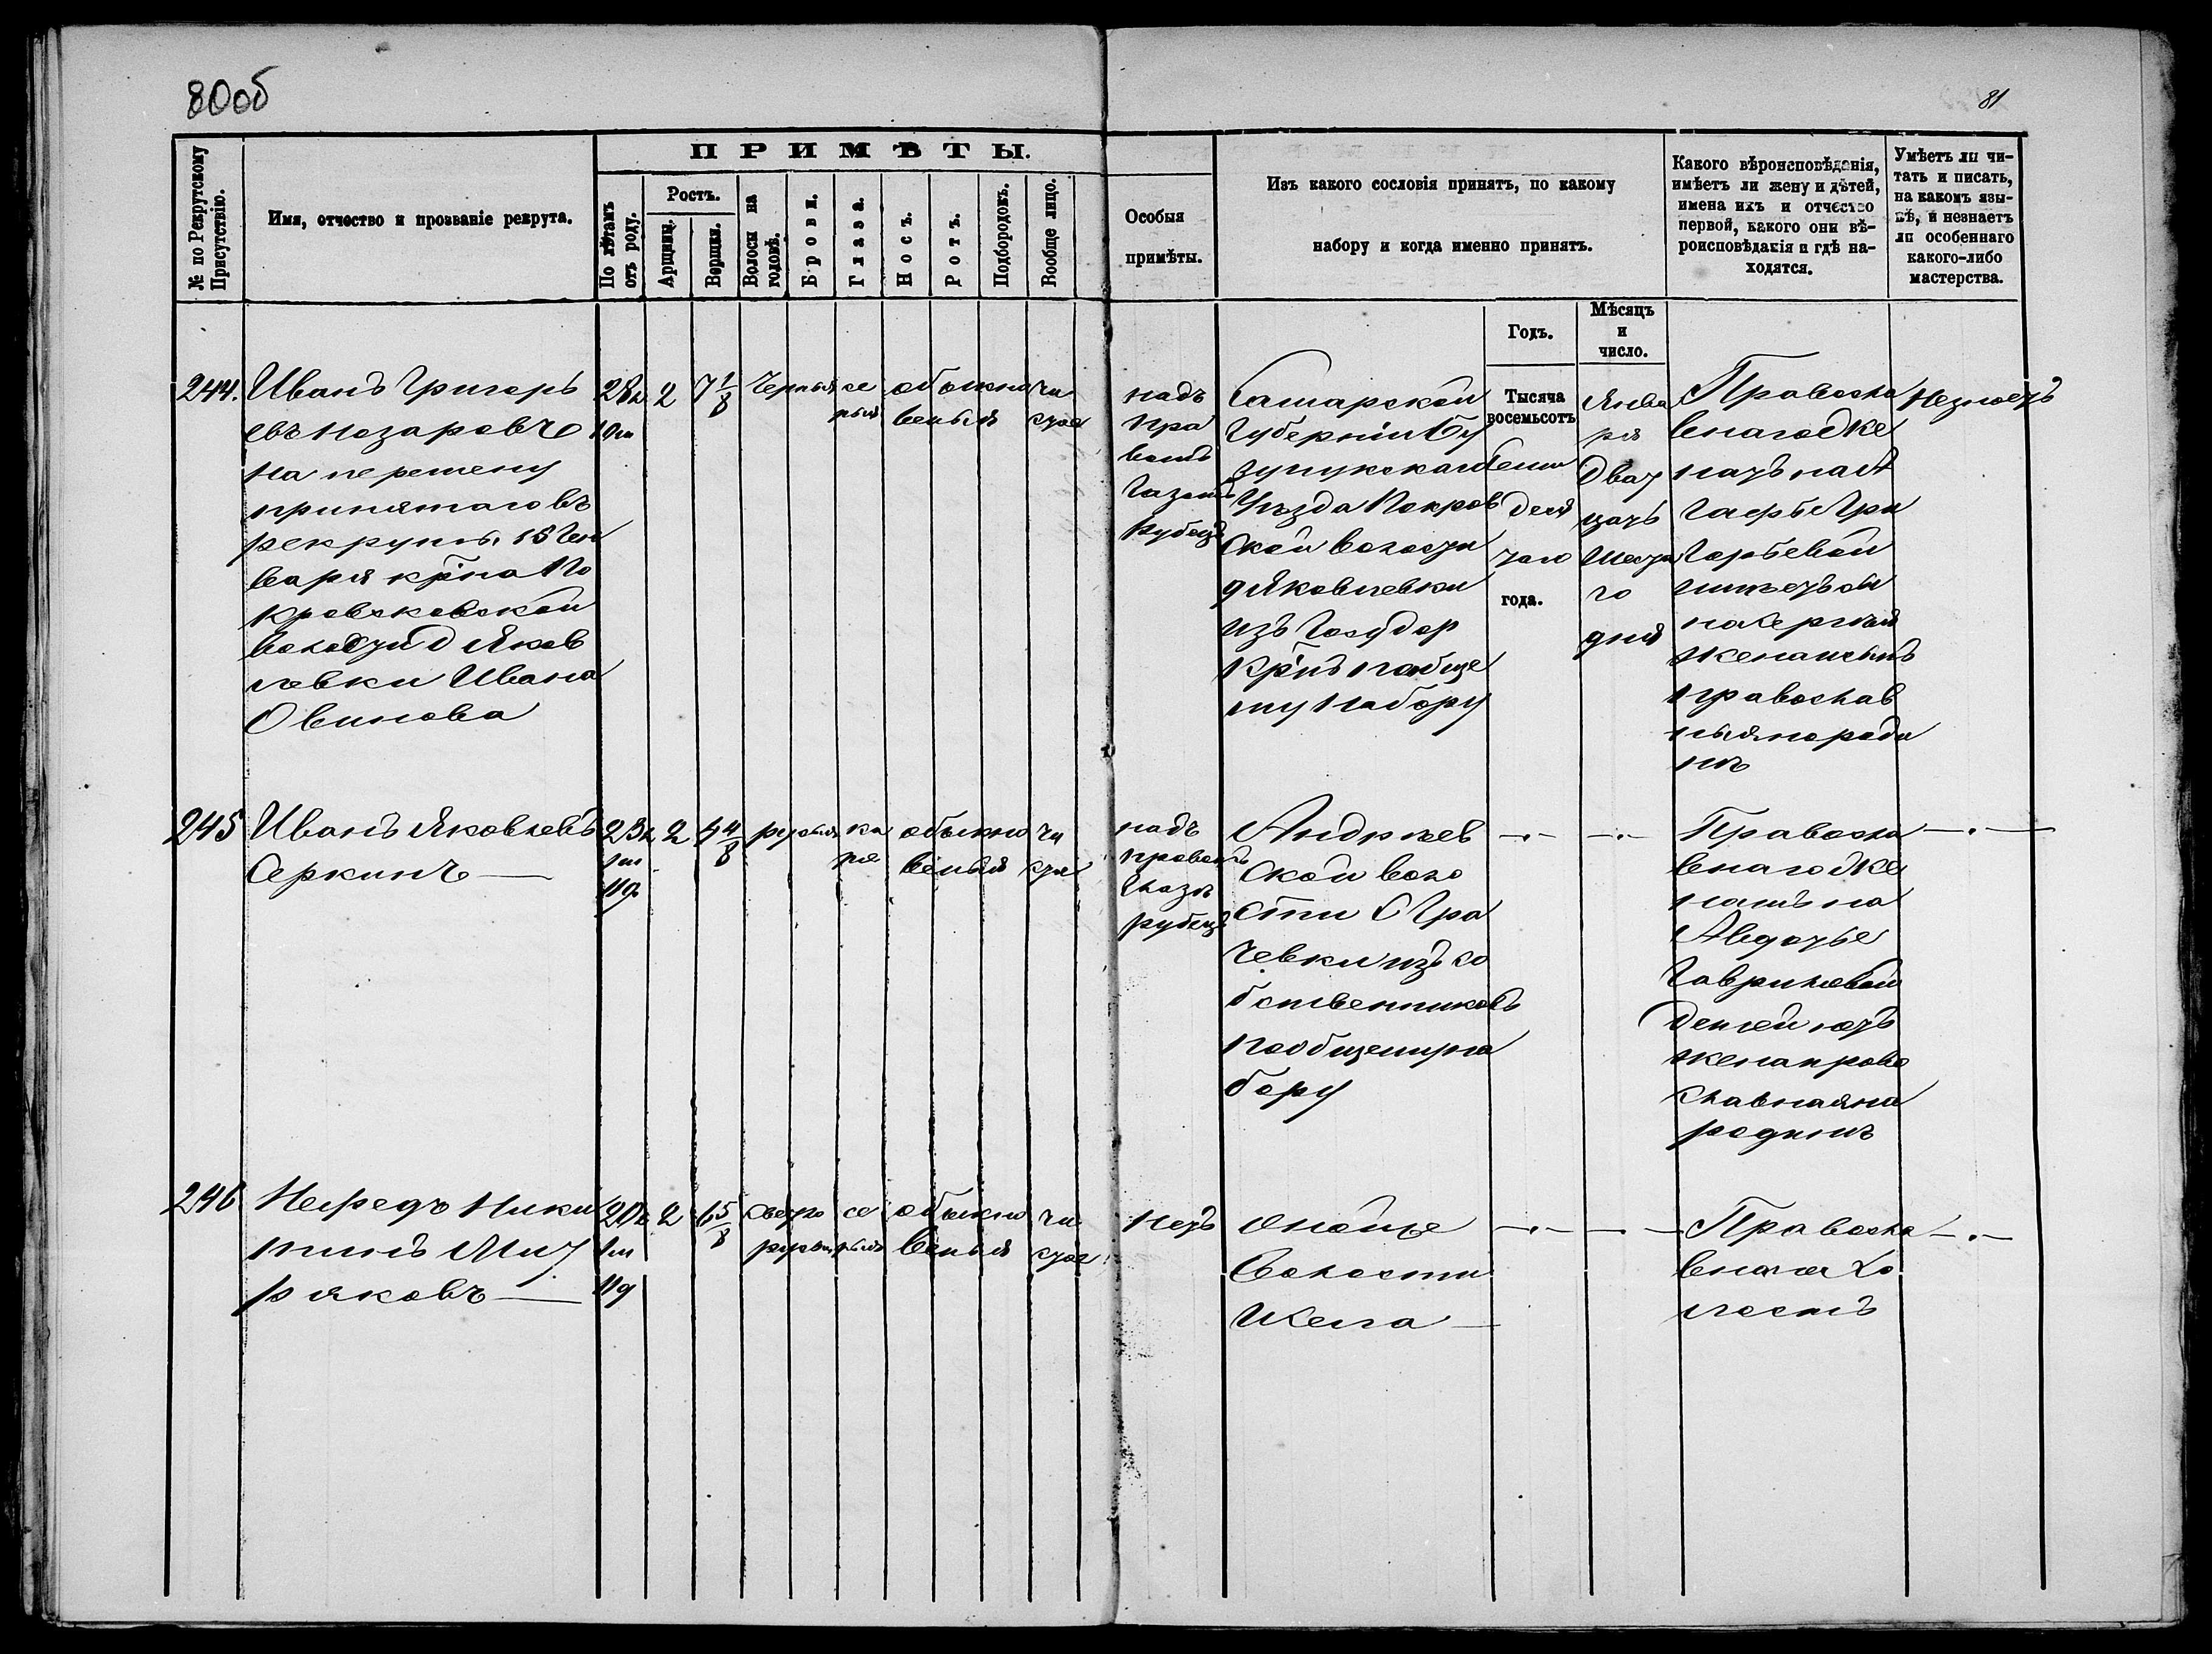 80об
81
№ по Рекрутскому Присутствію.
Имя, отчество и прозваніе рекрута.
ПРИМѢТЫ.
По лѣтамъ отъ роду.
Ростъ.
Аршины.
Вершки.
Волосы на головѣ.
Брови.
Глаза.
Носъ.
Ротъ.
Подбородокъ.
Вообще лицо.
Особыя
примѣты.
Изъ какого сословія принятъ, по какому
набору и когда именно принятъ.
Какого вѣроисповѣданія,
имѣетъ ли жену и дѣтей,
имена ихъ и отчество
первой, какого они вѣ-
роисповѣданія и гдѣ на-
ходятся.
Умѣетъ ли чи-
тать и писать,
на какомъ язы-
кѣ, и незнаетъ
ли особеннаго
какого-либо
мастерства.
Годъ.
Мѣсяцъ
и
число.
244.
Иванъ Григорь
евъ Назаровъ
на перемену
принятаго въ
рекруты 13 Ген
варя кр-на По
кровсковской
волости д Яков
левки Ивана
Овинова
2
7 1/8
черныя
се
рыя
обыкно
веныя
чи
стое
надъ
пра
вымъ
глазомъ
рубецъ
Самарской
Губерніи Бу
зулукскаго
Уѣзда Покров
ской волости
д Яковлевки
изъ Государ
кр-нъ пообще
му набору
Тысяча
восемьсотъ
семи
деся
таго
года.
Янва
ря
Двад
цать
шеста
го
дня
Правосла
внаго же
натъ на А
гафье Гри
горьевой
жена и сынъ
православ
ныя на роди
нѣ
Незнаетъ
245
Иванъ Яковлевъ
Серкинъ
23 л
1 м
11 д
2
4 4/8
русыя
ка
рие
обыкно
веныя
чи
стое
надъ
правымъ
глазъ
рубецъ
Андреев
ской воло
сти С Гра
чевки изъ со
бственниковъ
пообщему на
бору
Правосла
внаго же
натъ на
Авдотье
Гавриловой
детей нетъ
жена право
славная на
родинѣ
246
Нефедъ Ники
тинъ Мит
ряковъ
20 л
1 м
11 д
2
6 5/8
светло
русыя
се
рыя
обыкно
веныя
чи
стое
нетъ
оной же
волости
и села
Правосла
внаго хо
лостъ